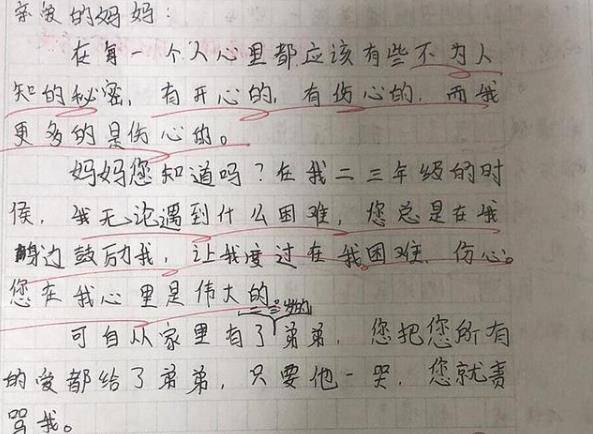 亲爱的妈妈：
在每一个人心里都应该有些不为人
知的秘密，有开心的，有伤心的，而我
更多的是伤心的。
妈妈您知道吗？在我二三年级的时
侯，我无论遇到什么困难，您总是在我
身边鼓励我，让我度过在我困难，伤心。
您在我心里是伟大的。
二三岁的
可自从家里有了弟弟，您把您所有
的爱都给了弟弟，只要他一哭，您就责
骂我。